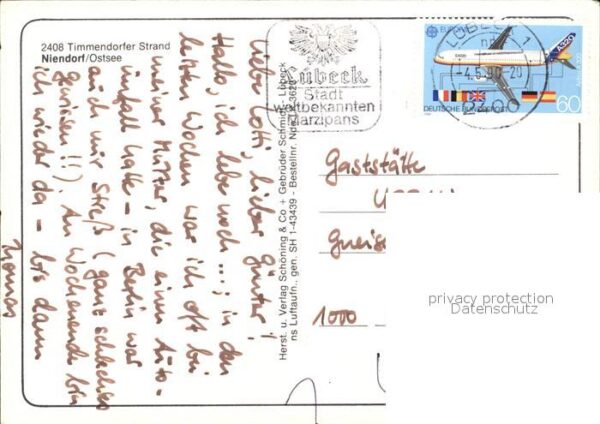 2408 Timmendorfer Strand
Niendorf/Ostsee
Liebe Lotti, lieber Günter!
Hallo, ich lebe noch...; in den
letzten Wochen war ich oft bei
meiner Mutter, die einen Auto-
unfall hatte – in Berlin war
auch nur Streß (ganz schlechtes
Gewissen!!). Am Wochenende bin
ich wieder da – bis dann
Thomas
Herst. u. Verlag Schöning & Co + Gebrüder Schmidt, Lübeck
ns Luftaufn., gen. SH 1-43439 - Bestellnr.
Lübeck
Stadt
weltbekannten
Marzipans
EUROPA
LÜBECK 1
-20
A320
DEUTSCHE BUNDESPOST
60
Gaststätte
1000
privacy protection
Datenschutz